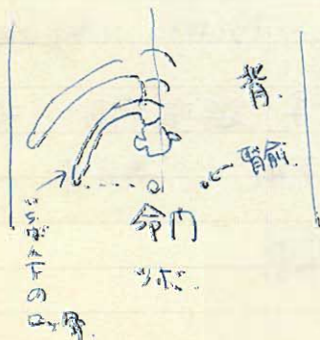 背
腎兪
命門
ツボ
いちばん下のロッ骨